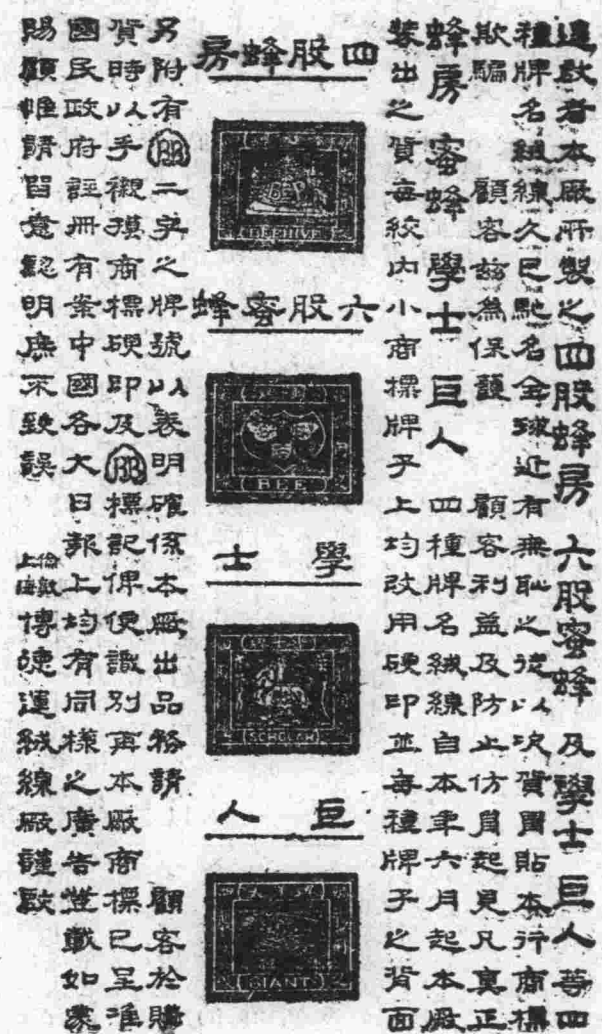 逕啟者本厰所製之四股蜂房 六股蜜蜂 及學士 巨人等四
種牌名絨線久已馳名全球近有無恥之徒以次貨冒貼本行商標
欺騙 顧客茲為保護 顧客利益及防止仿冒起見凡真正
蜂房 蜜蜂 學士 巨人 四種牌名絨線自本年六月起本厰
裝出之貨每絞內小商標牌子上均改用硬印並每種牌子之背面
四股蜂房
BEEHIVE
六股蜜蜂
BEE
學士
SCHOLAR
巨人
GIANT
另附有BB二字之牌號以表明確係本厰出品務請 顧客於購
貨時以手襯摸商標硬印及BB標記俾便識別再本厰商標已呈准
國民政府註冊有案中國各大日報上均有同樣之廣告登載如蒙
賜顧惟請留意認明庶不致誤 倫敦上海博德運絨線厰謹啟